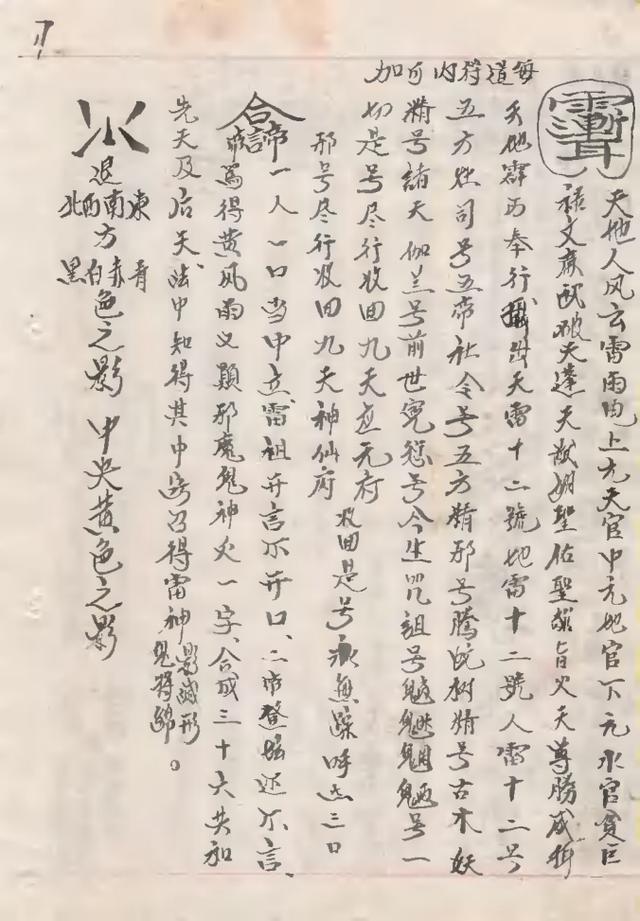 每道符内可加
天地人风云雷雨电上元天官中元地官下元水官貪巨
禄文廉武破天蓬天猷翊聖佑聖敕旨火天尊勝威
天地霹雳奉行攝出天雷十二號地雷十二號人雷十二号
五方 司号五帝社令号五方精邪号騰蛇树精号古木妖
精号諸天伽兰号前世冤愆号今生咒詛号 号一
切是号尽行收回九天应元府 收回是号永無踪 吽 三口
邪号尽行收回九天神仙府
合 帝一人一口当中立、雷祖开言不开口、二帝登坛还不言、
帝篤得黄风雨又顕邪魔鬼神火一字、合成三十六共和
先天及后天、法中知得其中窍召得雷神鬼将 影滅形。
退東南西北方青赤白黑色之影 中央黄色之影